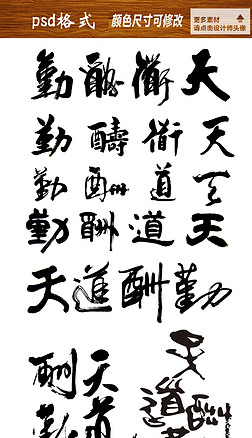 psd格式 颜色尺寸可修改
更多素材
请点击设计师头像
天衜酬勤
天衜醻勤
天道酬勤
天道酬勤
天道酬勤
天道
酬勤
天道酬